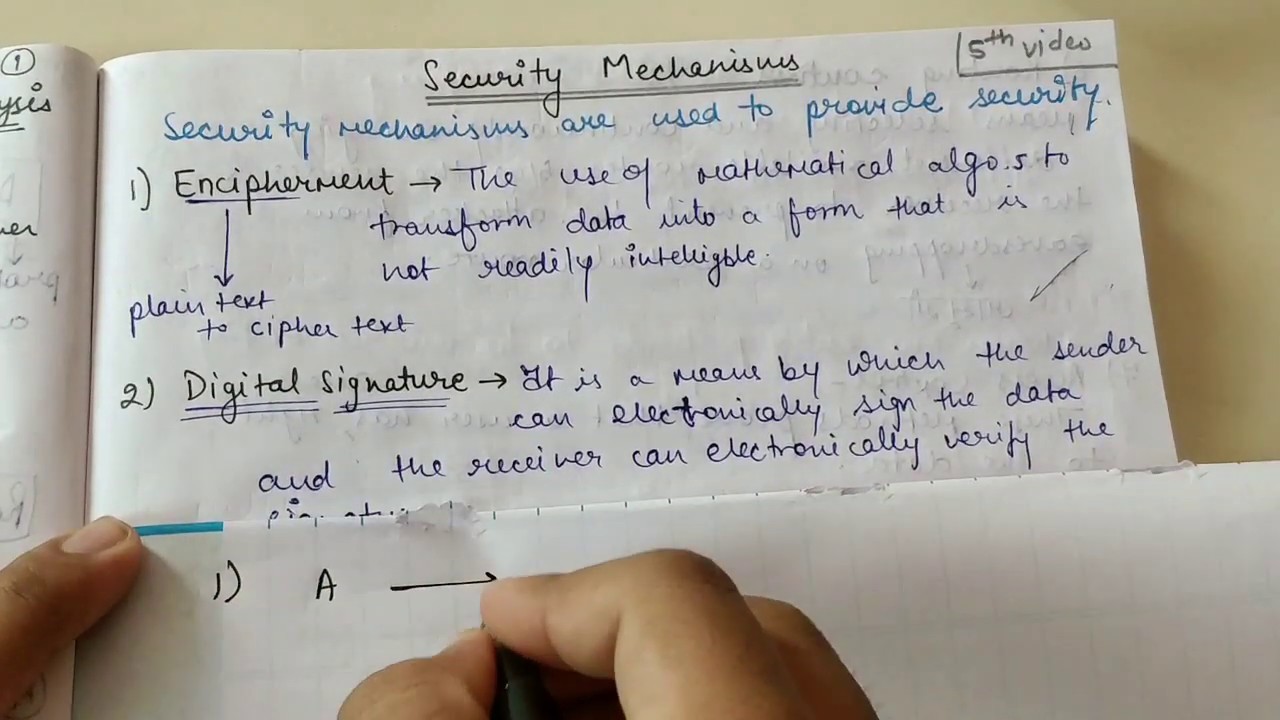 1
ysis
Security Mechanisms
5th video
Security mechanisms are used to provide security.
1) Encipherment → The use of mathematical algo.s to
transform data into a form that is
not readily intelligble.
plain text
to cipher text
2) Digital Signature → It is a means by which the sender
can electronically sign the data
and the receiver can electronically verify the
1) A →